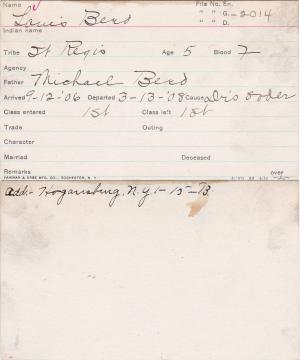 Name Louis Berd File No. En.
" " G. -2014
Indian name " " D.
Tribe St Regis Age 5 Blood 7
Agency
Father Michael Berd
Arrived 9-12-'06 Departed 3-13-'08 Cause Dr's order
Class entered 1st Class left 1st
Trade Outing
Character
Married Deceased
Remarks over
YAWMAN & ERBE MFG. CO., ROCHESTER, N. Y.
Add:- Hogansburg, N.Y. 1-15-13.